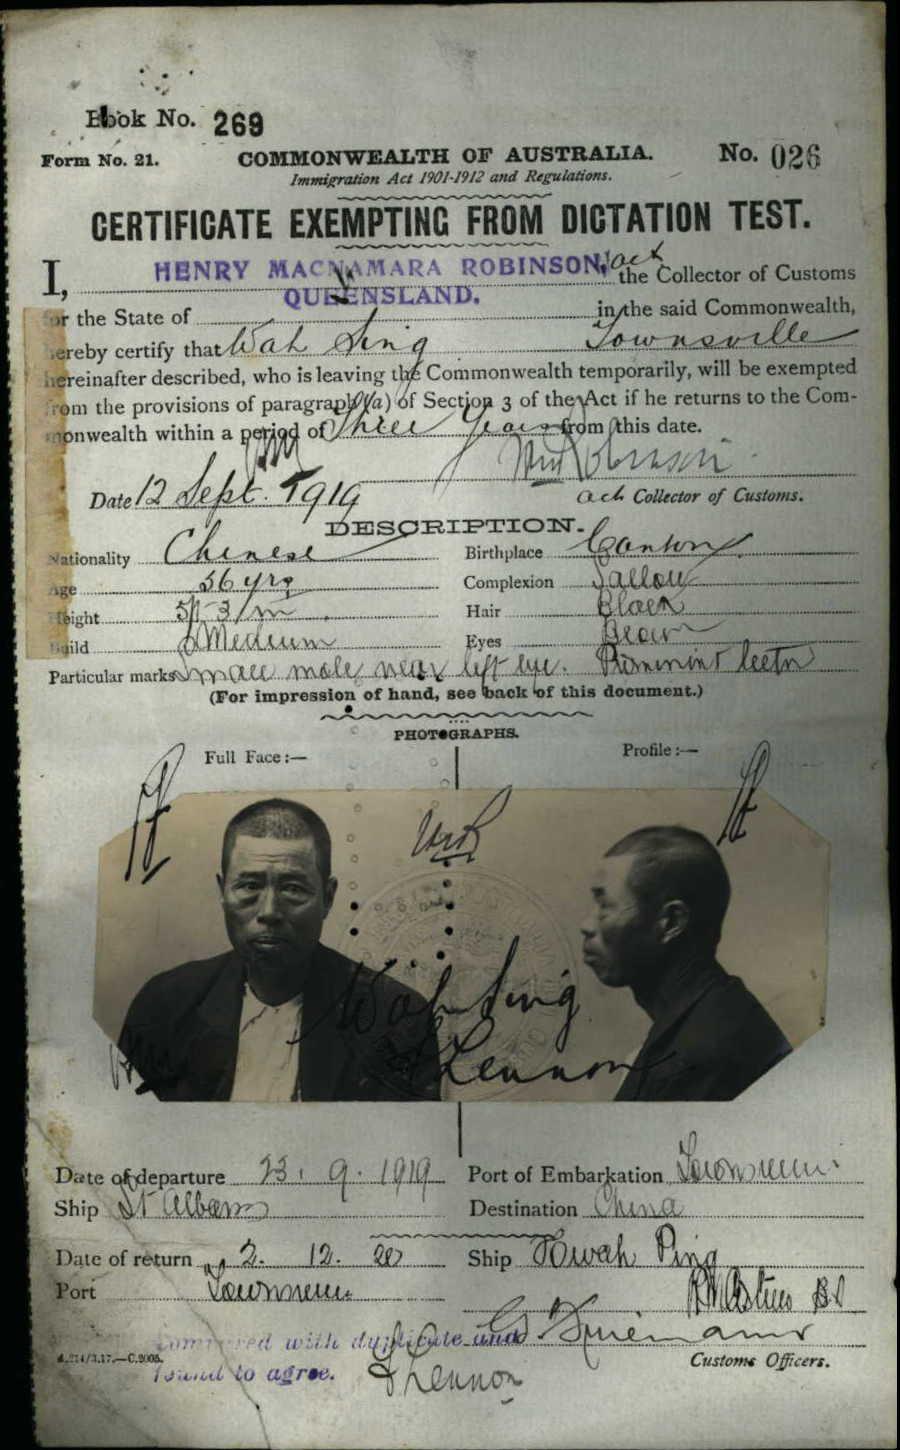 Book No. 269
Form No. 21. COMMONWEALTH OF AUSTRALIA. No. 026
Immigration Act 1901-1912 and Regulations.
CERTIFICATE EXEMPTING FROM DICTATION TEST.
I, HENRY MACNAMARA ROBINSON, act the Collector of Customs
QUEENSLAND.
for the State of in the said Commonwealth,
hereby certify that Wah Sing Townsville
hereinafter described, who is leaving the Commonwealth temporarily, will be exempted
from the provisions of paragraph (a) of Section 3 of the Act if he returns to the Com-
monwealth within a period of Three Years from this date.
Date 12 Sept. 1919 act Collector of Customs.
DESCRIPTION.
Nationality Chinese Birthplace Canton
Age 56 yrs Complexion Sallow
Height 5ft 3 in Hair Black
Build Medium Eyes Brown
Particular marks Small mole near left eye. Prominent teeth
(For impression of hand, see back of this document.)
PHOTOGRAPHS.
Full Face:— Profile:—
Wah Sing
Lennon
Date of departure 23. 9. 1919 Port of Embarkation Townsville
Ship St Albans Destination China
Date of return 2. 12. 20 Ship Hwah Ping
Port Townsville
Compared with duplicate and
found to agree.
Lennon
Customs Officers.